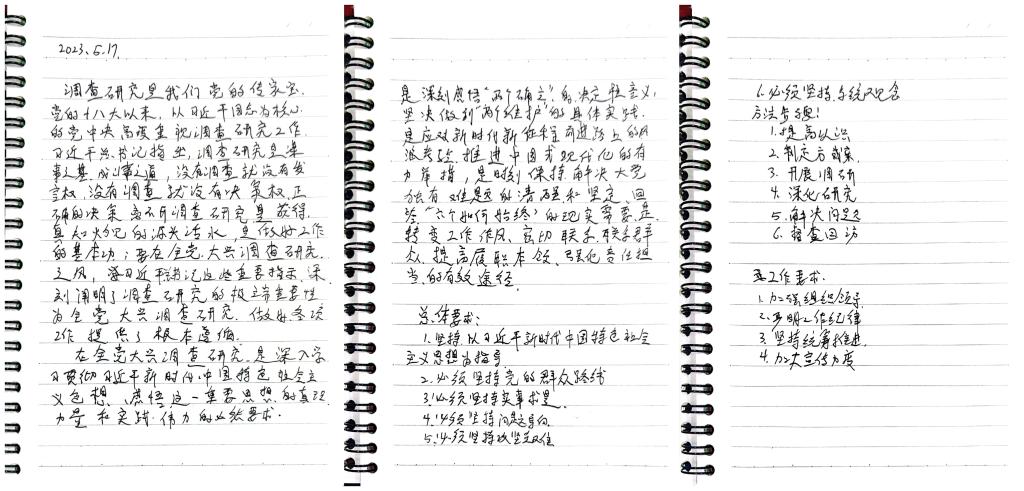 2023.5.17
调查研究是我们党的传家宝.
党的十八大以来，以习近平同志为核心
的党中央高度重视调查研究工作.
习近平总书记指出，调查研究是谋
事之基，成事之道，没有调查就没有发
言权，没有调查就没有决策权，正
确的决策离不开调查研究，是获得
真知灼见的源头活水，是做好工作
的基本功；要在全党大兴调查研究
之风，习近平书记这些重要指示，深
刻阐明了调查研究的极端重要性
为全党大兴调查研究，做好各项
工作提供了根本遵循.
在全党大兴调查研究，是深入学
习贯彻习近平新时代中国特色社会主
义思想，感悟这一重要思想的真理
力量和实践伟力的必然要求.
是深刻感悟“两个确立”的决定性意义，
坚决做到“两个维护”的具体实践.
是应对新时代新征程前进路上的风
浪考验，推进中国式现代化的有
力举措，是时刻保持解决大党
独有难题的清醒和坚定，回
答“六个如何始终”的现实需要，是
转变工作作风、密切联系群
众、提高履职本领、强化责任担
当的有效途径.
总体要求：
1.坚持以习近平新时代中国特色社会
主义思想为指导
2.必须坚持党的群众路线
3.必须坚持实事求是.
4.必须坚持问题导向.
5.必须坚持攻坚克难
6.必须坚持系统观念
方法步骤：
1.提高认识
2.制定方案
3.开展调研
4.深化研究
5.解决问题
6.督查回访
工作要求：
1.加强组织领导
2.严明工作纪律
3.坚持统筹推进
4.加大宣传力度